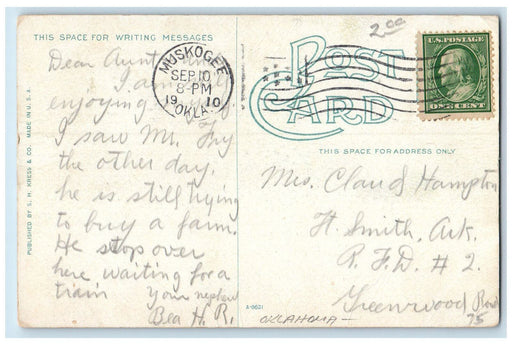 THIS SPACE FOR WRITING MESSAGES
Dear Aunt
I am
enjoying
I saw Mr. Fry
the other day,
he is still trying
to buy a farm.
He stop over
here waiting for a
train Your nephew
Bea H. R.
PUBLISHED BY S. H. KRESS & CO. MADE IN U.S.A.
MUSKOGEE
SEP 10
8-PM
1910
OKLA.
2.00
POST
CARD
U.S. POSTAGE
ONE CENT
THIS SPACE FOR ADDRESS ONLY
Mrs. Claud Hampton
Ft. Smith, Ark.
R. F. D. # 2.
Greenwood Road
75
A-9621
OKLAHOMA-